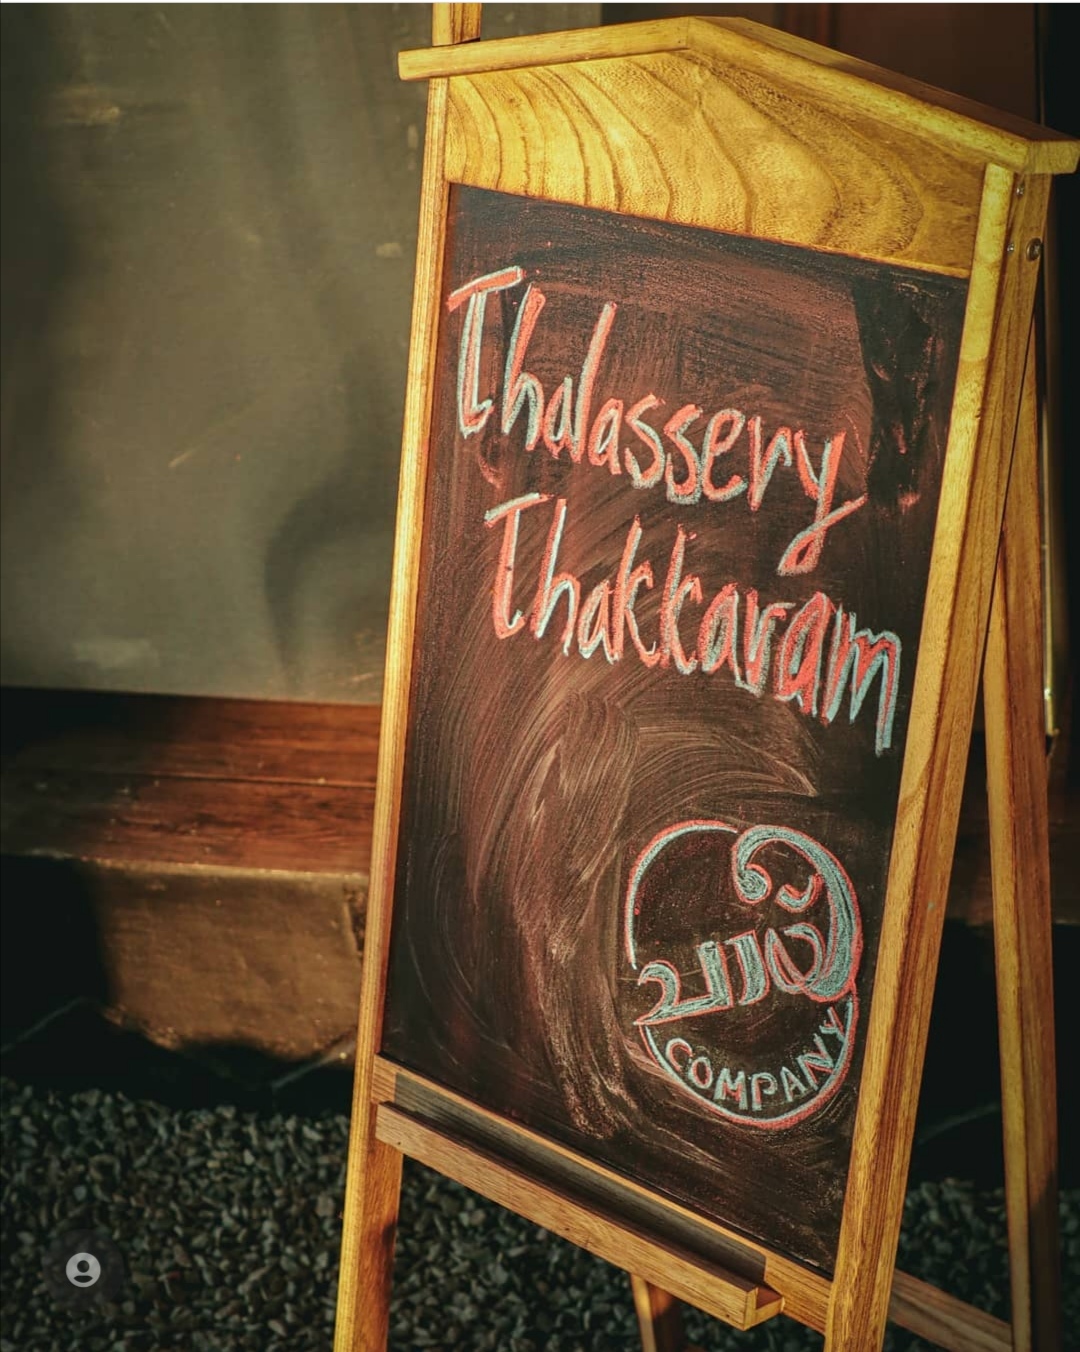 Thalassery
Thakkaram
COMPANY